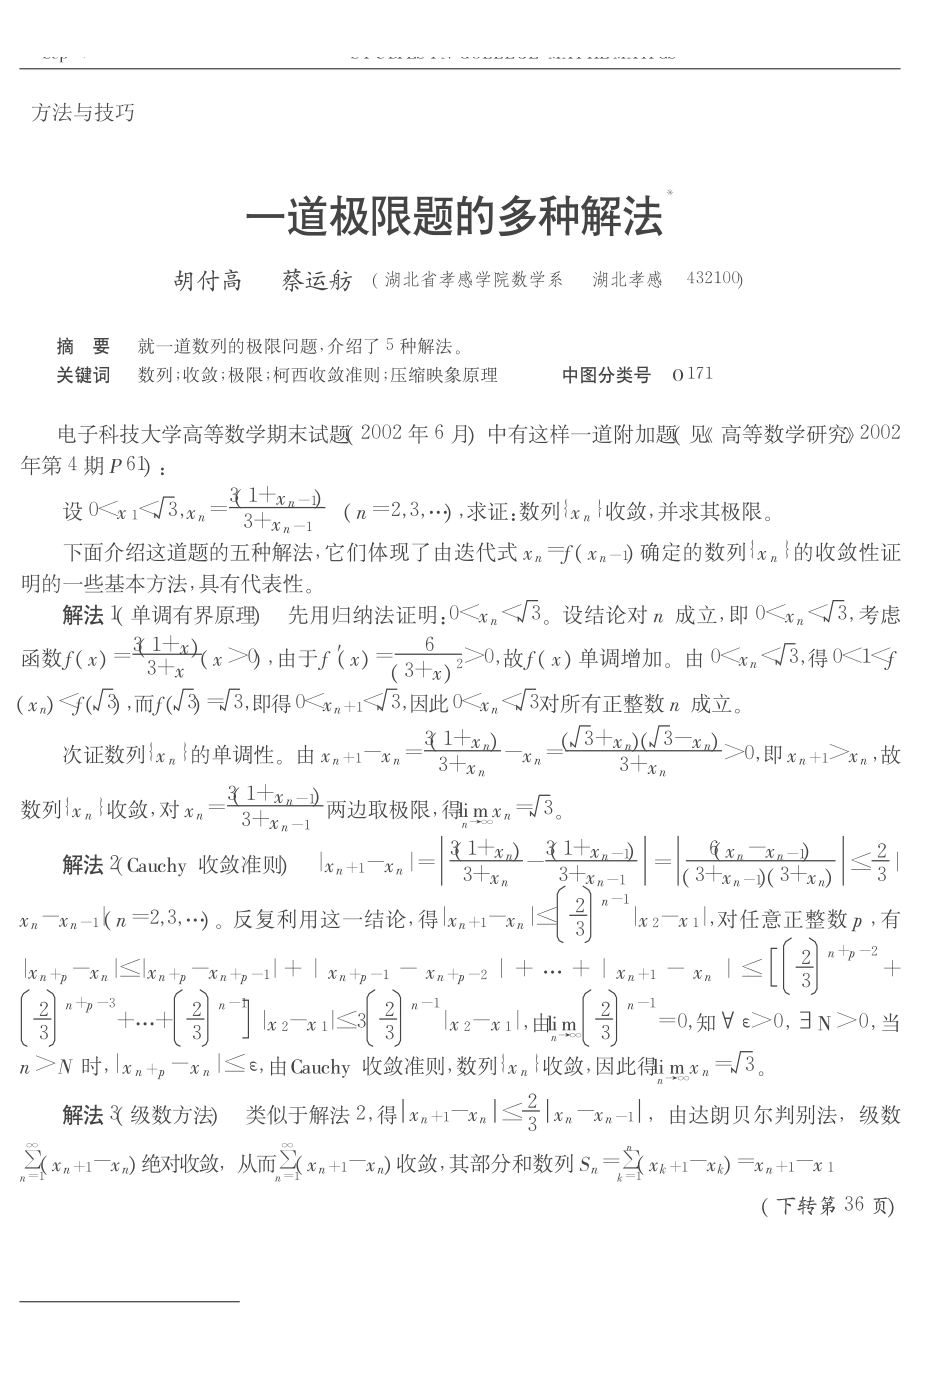 方法与技巧
一道极限题的多种解法*
胡付高 蔡运舫 (湖北省孝感学院数学系 湖北孝感 432100)
摘 要 就一道数列的极限问题,介绍了 5 种解法。
关键词 数列;收敛;极限;柯西收敛准则;压缩映象原理 中图分类号 O171
电子科技大学高等数学期末试题(2002 年 6 月)中有这样一道附加题(见《高等数学研究》2002
年第 4 期 P61):
设 0<x₁<√3,xₙ=3(1+xₙ₋₁)/(3+xₙ₋₁) (n=2,3,…),求证:数列{xₙ}收敛,并求其极限。
下面介绍这道题的五种解法,它们体现了由迭代式 xₙ=f(xₙ₋₁)确定的数列{xₙ}的收敛性证
明的一些基本方法,具有代表性。
解法 1(单调有界原理) 先用归纳法证明:0<xₙ<√3。设结论对 n 成立,即 0<xₙ<√3,考虑
函数 f(x)=3(1+x)/(3+x)(x>0),由于 f′(x)=6/(3+x)²>0,故 f(x)单调增加。由 0<xₙ<√3,得 0<1<f
(xₙ)<f(√3),而 f(√3)=√3,即得 0<xₙ₊₁<√3,因此 0<xₙ<√3对所有正整数 n 成立。
次证数列{xₙ}的单调性。由 xₙ₊₁−xₙ=3(1+xₙ)/(3+xₙ)−xₙ=(√3+xₙ)(√3−xₙ)/(3+xₙ)>0,即 xₙ₊₁>xₙ,故
数列{xₙ}收敛,对 xₙ=3(1+xₙ₋₁)/(3+xₙ₋₁)两边取极限,得 lim_{n→∞} xₙ=√3。
解法 2(Cauchy 收敛准则) |xₙ₊₁−xₙ|=|3(1+xₙ)/(3+xₙ)−3(1+xₙ₋₁)/(3+xₙ₋₁)|=|6(xₙ−xₙ₋₁)/((3+xₙ₋₁)(3+xₙ))|≤2/3|
xₙ−xₙ₋₁|(n=2,3,…)。反复利用这一结论,得|xₙ₊₁−xₙ|≤(2/3)ⁿ⁻¹|x₂−x₁|,对任意正整数 p,有
|xₙ₊ₚ−xₙ|≤|xₙ₊ₚ−xₙ₊ₚ₋₁|+|xₙ₊ₚ₋₁−xₙ₊ₚ₋₂|+…+|xₙ₊₁−xₙ|≤[(2/3)ⁿ⁺ᵖ⁻²+
(2/3)ⁿ⁺ᵖ⁻³+…+(2/3)ⁿ⁻¹]|x₂−x₁|≤3(2/3)ⁿ⁻¹|x₂−x₁|,由 lim_{n→∞}(2/3)ⁿ⁻¹=0,知∀ε>0,∃N>0,当
n>N 时,|xₙ₊ₚ−xₙ|≤ε,由 Cauchy 收敛准则,数列{xₙ}收敛,因此得 lim_{n→∞} xₙ=√3。
解法 3(级数方法) 类似于解法 2,得|xₙ₊₁−xₙ|≤2/3|xₙ−xₙ₋₁|,由达朗贝尔判别法,级数
∑_{n=1}^{∞}(xₙ₊₁−xₙ)绝对收敛,从而∑_{n=1}^{∞}(xₙ₊₁−xₙ)收敛,其部分和数列 Sₙ=∑_{k=1}^{n}(xₖ₊₁−xₖ)=xₙ₊₁−x₁
(下转第 36 页)